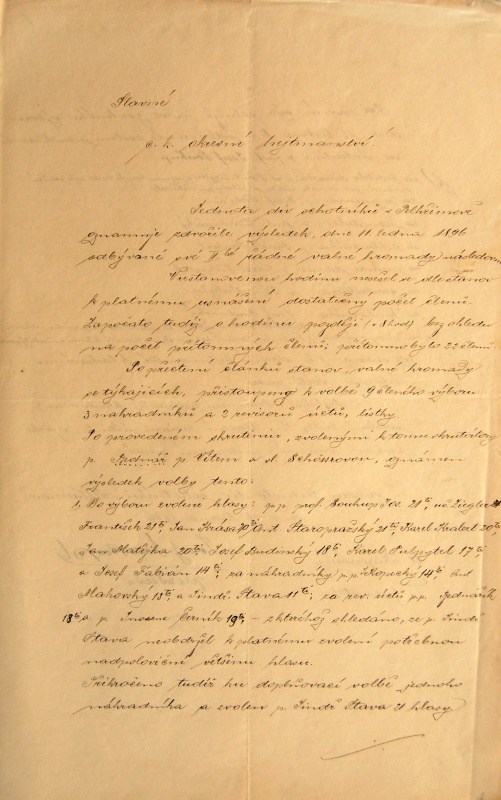 Slavné
c. k. okresní hejtmanství!
Jednota div. ochotníků v Pelhřimově
oznamuje zdvořile výsledek, dne 11 ledna 1896
odbývané své II té řádné valné hromady následovně
V ustanovenou hodinu nesešel se dle stanov
k platnému usnášení dostatečný počet členů.
Započato tudíž o hodinu později bez ohledu
na počet přítomných členů; přítomno bylo 22 členů.
Po přečtení článků stanov, valné hromady
se týkajících, přistoupeno k volbě 9 členého výboru
3 náhradníků a 2 revisorů účtů, lístky.
Po provedeném skrutiniu, zvolenými k tomu skrutátory
p. p. a sl. oznámen
výsledek volby tento:
Do výboru zvoleni hlasy: p.p. prof. Soukup Jos. 21 Ziegler
František 21 Jan Krása Ant. Staropražský 21 Karel Kratochvíl 20
Jan Matějka 20 Josef Budínský 18 Karel 17
a Josef Fabián 14 za náhradníky p.p. Kopecký 14 Ant.
Makovský 13 a Jindř. Šťáva 11 za rev. účtů p.p. Bednářík
18 a p. Černík 19 – shledáno, že p. Jindř.
Šťáva neobdržel k platnému zvolení potřebnou
nadpoloviční většinu hlasů.
Přikročeno tudíž ku doplňovací volbě jednoho
náhradníka a zvolen p. Jindř. Šťáva 21 hlasy